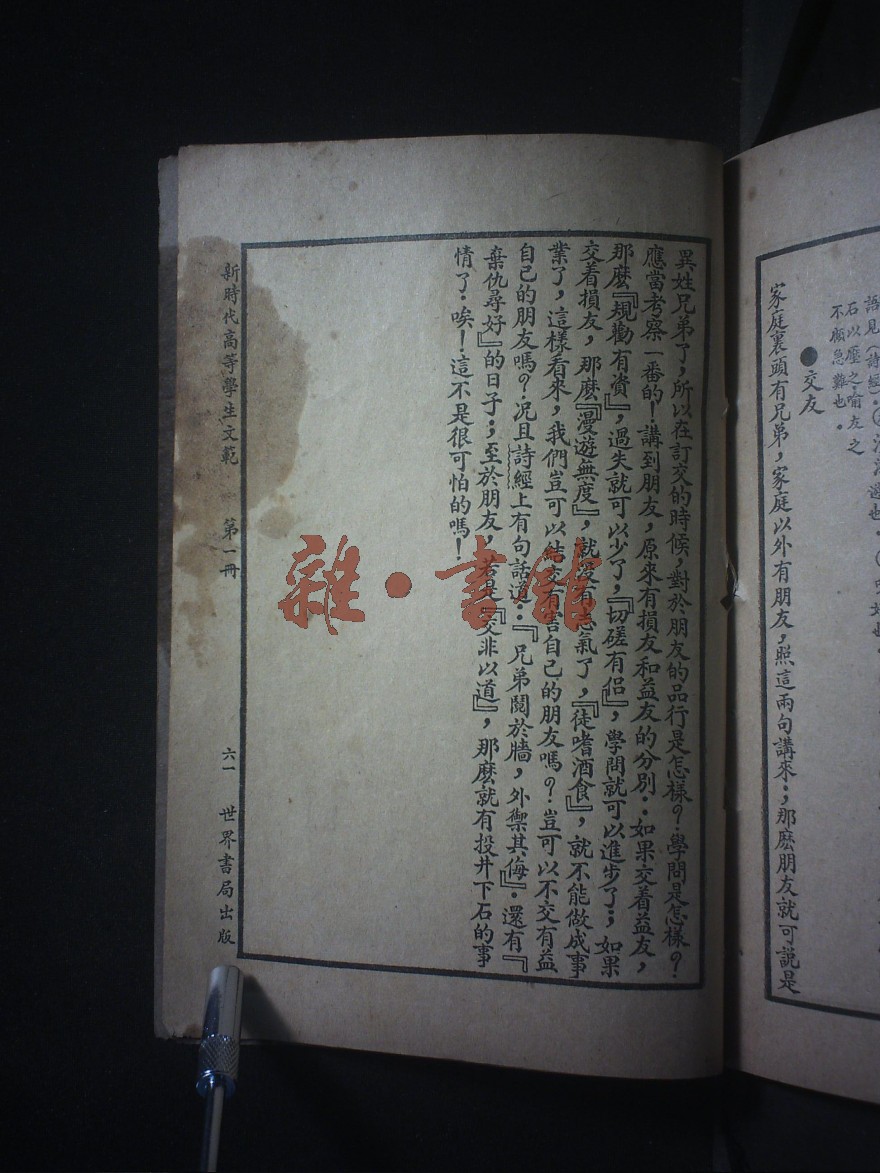 語見(詩經)・
石以壓之喻友之
不顧急難也・
●交友
家庭裏頭有兄弟，家庭以外有朋友，照這兩句講來；那麽朋友就可説是
異姓兄弟了，所以在訂交的時候，對於朋友的品行是怎樣？學問是怎樣？
應當考察一番的！講到朋友，原來有損友和益友的分別：如果交着益友，
那麽『規勸有資』，過失就可以少了，『切磋有侶』，學問就可以進步了；如果
交着損友，那麽『漫遊無度』，就沒有志氣了，『徒嗜酒食』，就不能做成事
業了，這樣看來，我們豈可以結交有害自己的朋友嗎？豈可以不交有益
自己的朋友嗎？况且詩經上有句話道：『兄弟鬩於牆，外禦其侮』・還有『
棄仇尋好』的日子；至於朋友，若是『交非以道』，那麽就有投井下石的事
情了・唉！這不是很可怕的嗎！
新時代高等學生文範 第一冊 六一 世界書局出版
雜・書館